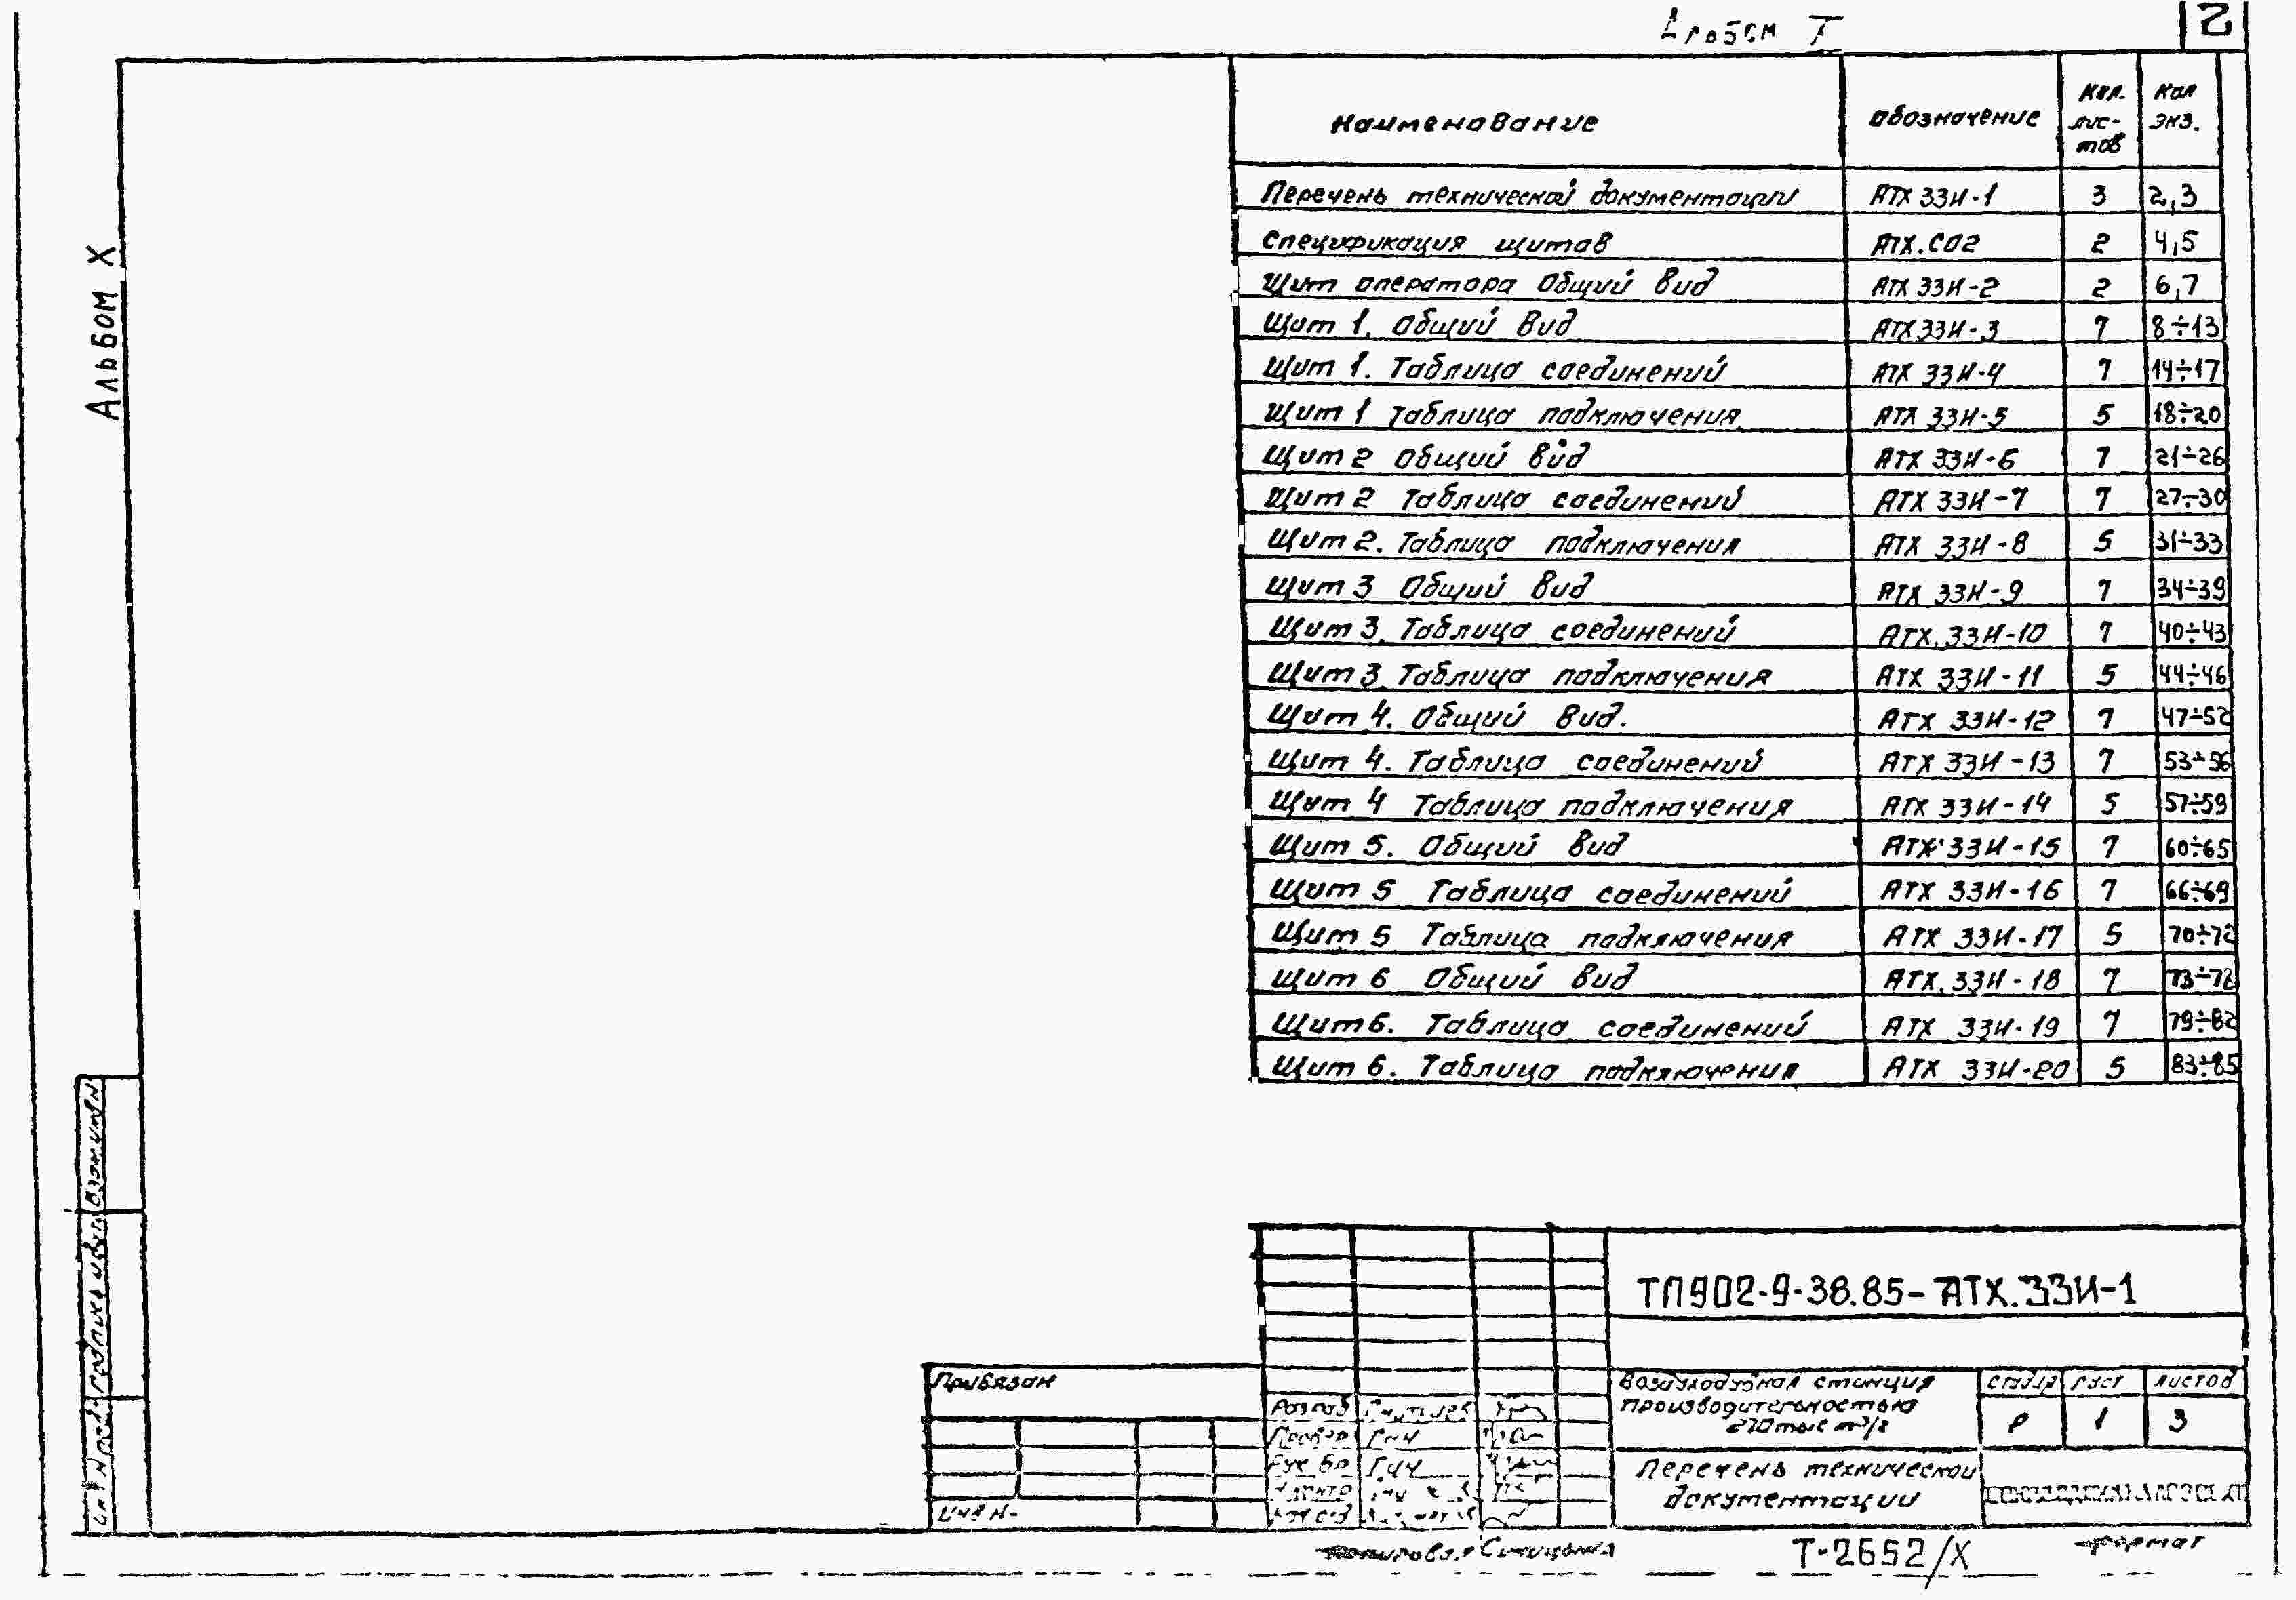 2
Альбом X
Наименование Обозначение Кол. лис- тов Кол экз.
Перечень технической документации АТХ 33И-1 3 2,3
Спецификация щитов АТХ.СО2 2 4,5
Щит оператора Общий вид АТХ 33И-2 2 6,7
Щит 1. Общий вид АТХ 33И-3 7 8÷13
Щит 1. Таблица соединений АТХ 33И-4 7 14÷17
Щит 1 Таблица подключения АТХ 33И-5 5 18÷20
Щит 2 Общий вид АТХ 33И-6 7 21÷26
Щит 2 Таблица соединений АТХ 33И-7 7 27÷30
Щит 2. Таблица подключения АТХ 33И-8 5 31÷33
Щит 3 Общий вид АТХ 33И-9 7 34÷39
Щит 3. Таблица соединений АТХ.33И-10 7 40÷43
Щит 3. Таблица подключения АТХ 33И-11 5 44÷46
Щит 4. Общий вид. АТХ 33И-12 7 47÷52
Щит 4. Таблица соединений АТХ 33И-13 7 53÷56
Щит 4 Таблица подключения АТХ 33И-14 5 57÷59
Щит 5. Общий вид АТХ 33И-15 7 60÷65
Щит 5 Таблица соединений АТХ 33И-16 7 66÷69
Щит 5 Таблица подключения АТХ 33И-17 5 70÷72
Щит 6 Общий вид АТХ.33И-18 7 73÷78
Щит 6. Таблица соединений АТХ 33И-19 7 79÷82
Щит 6. Таблица подключения АТХ 33И-20 5 83÷85
ТП902-9-38.85-АТХ.33И-1
Привязан
Инв N-
Разраб
Провер Гич
Рук бр Гич
Воздуходувная станция
производительностью
Стадия Лист Листов
Р 1 3
Перечень технической
документации
Копировал
Т-2652/X
Формат